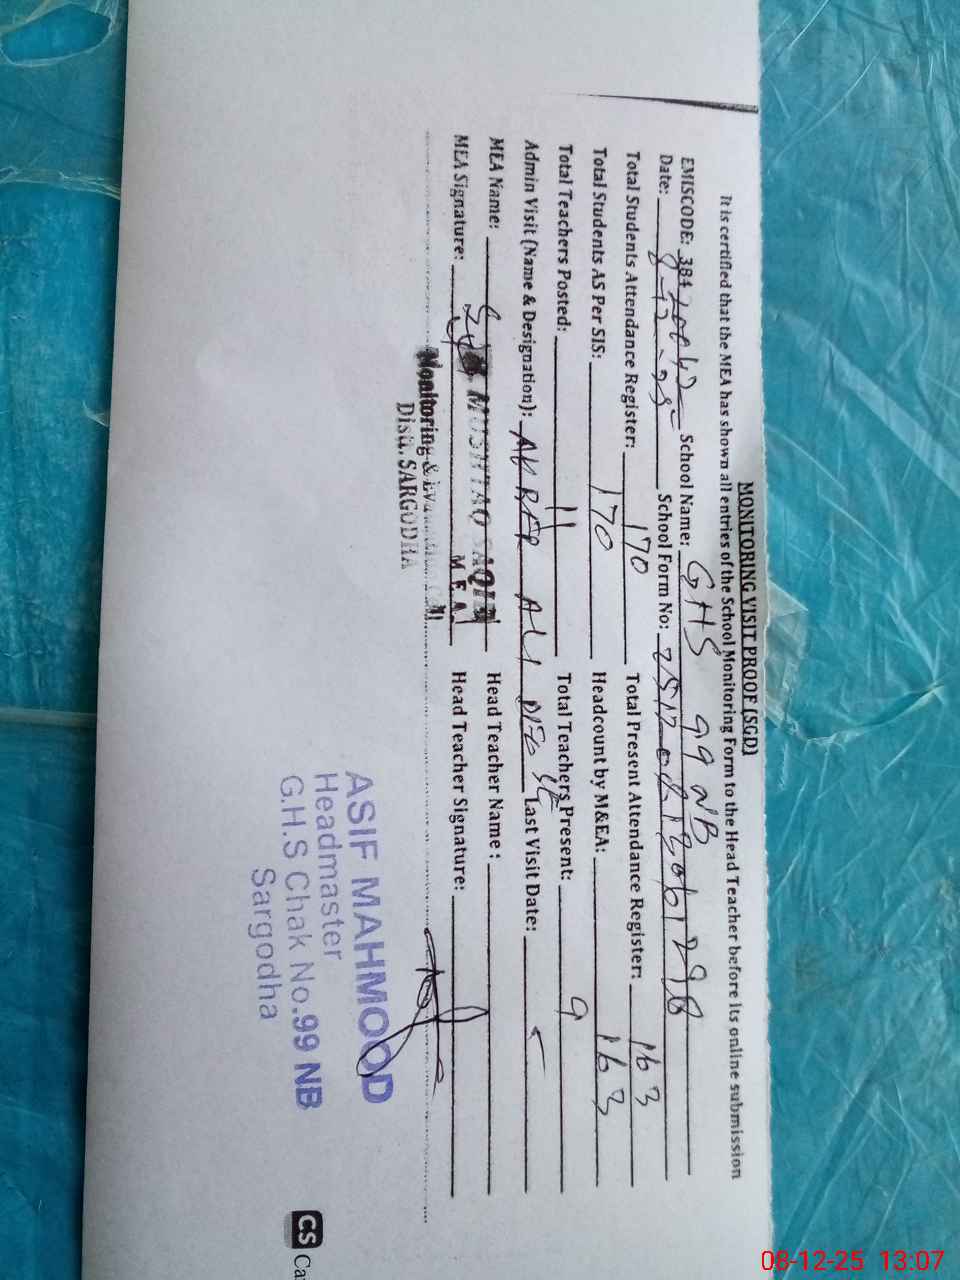 MONITORING VISIT PROOF (SGD)
It is certified that the MEA has shown all entries of the School Monitoring Form to the Head Teacher before its online submission
EMISCODE: 384 School Name: GHS 99 NB
Date: 8-12-25 School Form No:
Total Students Attendance Register: 170 Total Present Attendance Register: 163
Total Students AS Per SIS: 170 Headcount by M&EA: 163
Total Teachers Posted: 11 Total Teachers Present: 9
Admin Visit (Name & Designation): AKBER ALI Last Visit Date:
MEA Name: MUSHTAQ Head Teacher Name:
M.E.A.
MEA Signature: Head Teacher Signature:
Monitoring & Cell
Distt. SARGODHA
ASIF MAHMOOD
Headmaster
G.H.S Chak No.99 NB
Sargodha
CS
08-12-25 13:07